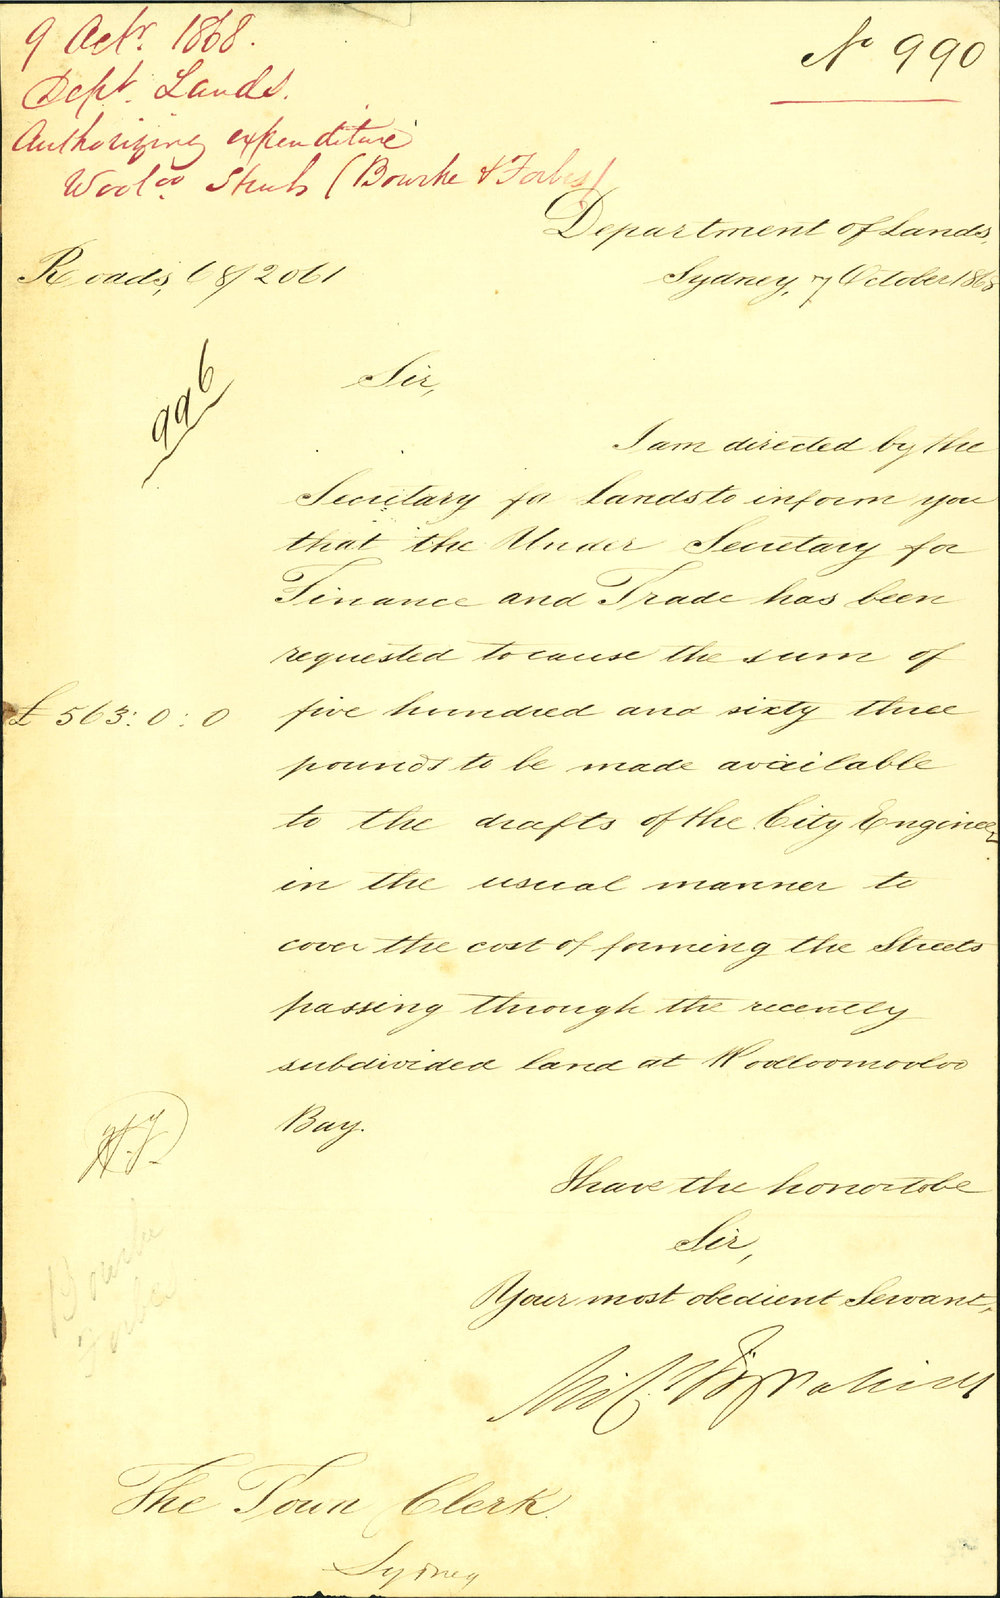 9 Octr. 1868.
Dept. Lands.
Authorizing expenditure
Wooloo. Streets (Bourke & Forbes)
No 990
Department of Lands,
Sydney, 7 October 1868
Roads, 68/2061
996
Sir,
I am directed by the
Secretary for Lands to inform you
that the Under Secretary for
Finance and Trade has been
requested to cause the sum of
£563:0:0
five hundred and sixty three
pounds to be made available
to the drafts of the City Engineer
in the usual manner to
cover the cost of forming the Streets
passing through the recently
subdivided land at Woolloomooloo
Bay.
I have the honor to be
Sir,
Your most obedient Servant,
Bourke
Forbes
The Town Clerk
Sydney